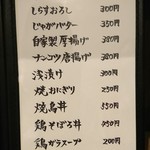 しらすおろし 300円
じゃがバター 350円
自家製厚揚げ 380円
ナンコツ唐揚げ 380円
浅漬け 300円
焼おにぎり 250円
焼鳥丼 550円
鶏そぼろ丼 450円
鶏ガラスープ 200円